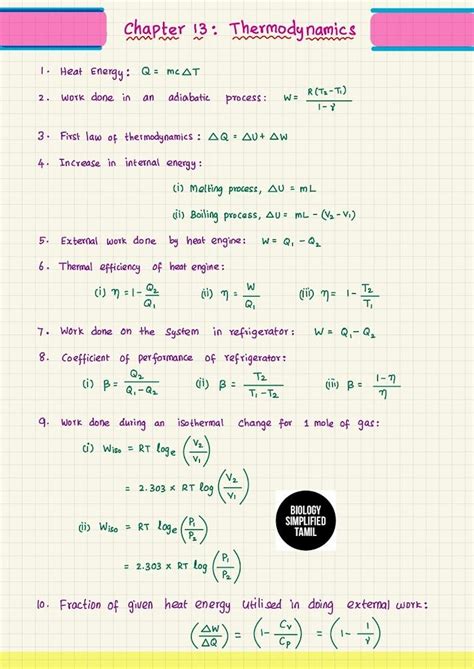 Chapter 13: Thermodynamics
1. Heat Energy: Q = mc△T
2. Work done in an adiabatic process: W = R(T₂-T₁)/1-γ
3. First law of thermodynamics: △Q = △U + △W
4. Increase in internal energy:
(i) Melting process, △U = mL
(ii) Boiling process, △U = mL - (V₂-V₁)
5. External work done by heat engine: W = Q₁ - Q₂
6. Thermal efficiency of heat engine:
(i) η = 1 - Q₂/Q₁ (ii) η = W/Q₁ (iii) η = 1 - T₂/T₁
7. Work done on the system in refrigerator: W = Q₁ - Q₂
8. Coefficient of performance of refrigerator:
(i) β = Q₂/Q₁-Q₂ (ii) β = T₂/T₁-T₂ (iii) β = 1-η/η
9. Work done during an isothermal change for 1 mole of gas:
(i) Wiso = RT logₑ (V₂/V₁)
= 2.303 × RT log (V₂/V₁)
(ii) Wiso = RT logₑ (P₁/P₂)
= 2.303 × RT log (P₁/P₂)
BIOLOGY
SIMPLIFIED
TAMIL
10. Fraction of given heat energy utilised in doing external work:
(△W/△Q) = (1 - Cᵥ/Cₚ) = (1 - 1/γ)